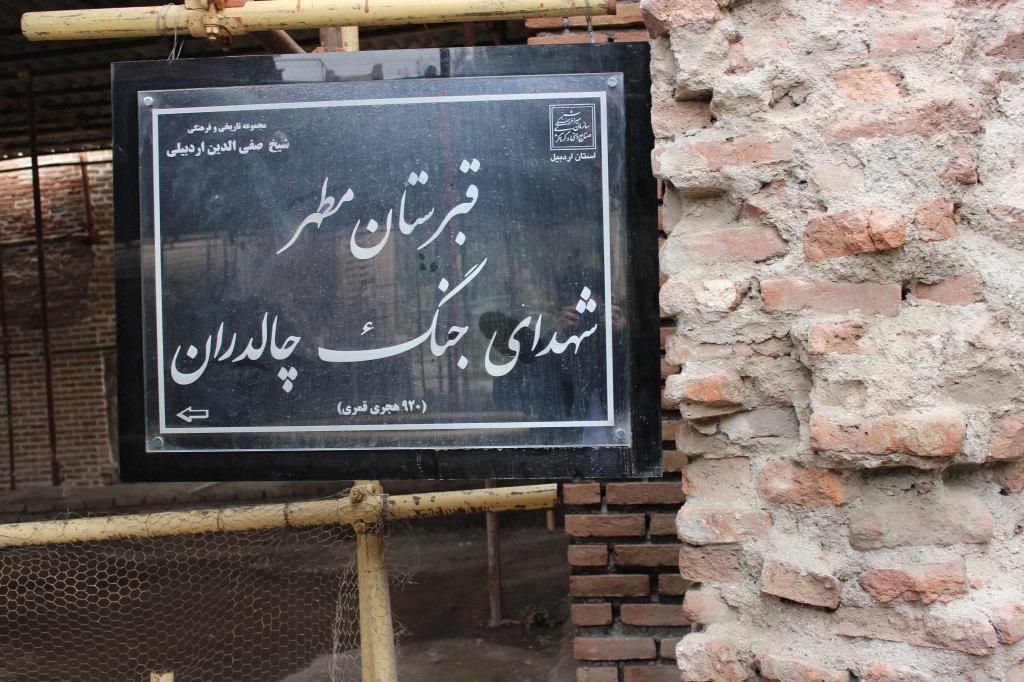 مجموعه تاریخی و فرهنگی
شیخ صفی الدین اردبیلی
استان اردبیل
قبرستان مطهر
شهدای جنگ چالدران
(۹۲۰ هجری قمری)